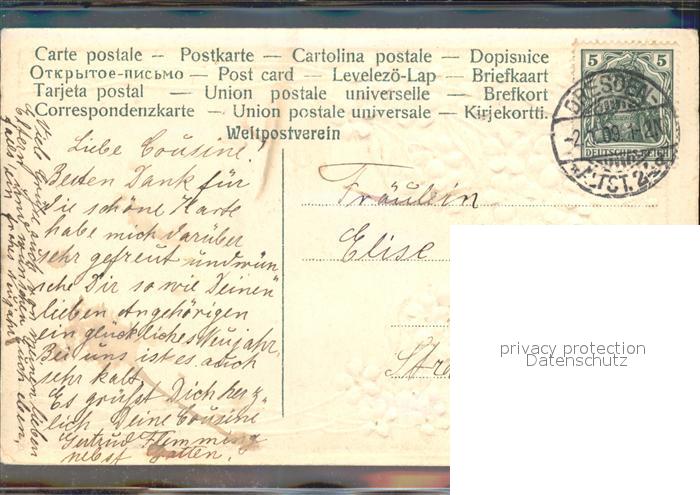 Carte postale — Postkarte — Cartolina postale — Dopisnice
Открытое-письмо — Post card — Levelező-Lap — Briefkaart
Tarjeta postal — Union postale universelle — Brefkort
Correspondenzkarte — Union postale universale — Kirjekortti.
Weltpostverein
5 5
DEUTSCHES REICH
DRESDEN-
ALTST. 24
Liebe Cousine!
Besten Dank für
die schöne Karte
habe mich darüber
sehr gefreut und wün-
sche Dir so wie Deinen
lieben Angehörigen
ein glückliches Neujahr,
Bei uns ist es auch
sehr kalt,
Es grüßt Dich herz-
lich Deine Cousine
Gertrud Flemming
nebst Gatten.
Viele Grüße auch von meinen lieben
Eltern und wünschen Euch eben-
falls ein frohes Neujahr
Fräulein
Elise
privacy protection
Datenschutz